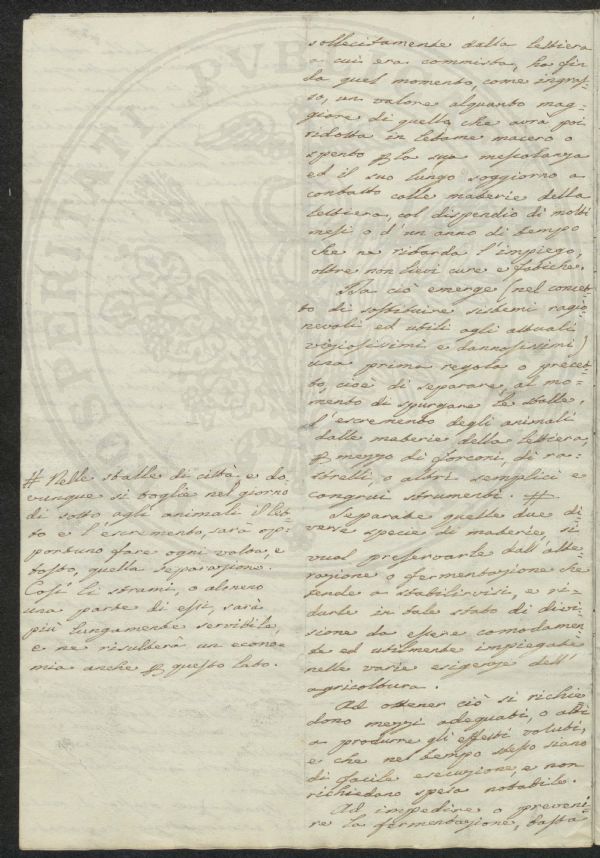 sollecitamente dalla lettiera
a cui era commista, ha fin
da quel momento, come ingras=
so, un valore alquanto mag=
giore di quello, che avrà poi
ridotta in letame macero o
spento p la sua mescolanza
ed il suo lungo soggiorno a
contatto colle materie della
lettiera, col dispendio di molti
mesi o d'un anno di tempo
che ne ritarda l'impiego,
oltre non lievi cure e fatiche.
Da ciò emerge (nel concet=
to di sostituire sistemi ragio=
nevoli ed utili agli attuali
viziosissimi e dannosissimi)
una prima regola o precet=
to, cioè di separare, al mo=
mento di spurgare le stalle,
l'escremento degli animali
dalle materie della lettiera,
p mezzo di forconi, di ra=
strelli, o altri semplici e
congrui strumenti. #
Separate quelle due di=
verse specie di materie, si
vuol preservarle dall'alte=
razione o fermentazione che
tende a stabilirvisi, e ri=
durle in tale stato di divi=
sione da essere comodamen=
te ed utilmente impiegate
nelle varie esigenze dell'
agricoltura.
Ad ottener ciò si richie
dono mezzi adeguati, o atti
a produrre gli effetti voluti,
e che nel tempo stesso siano
di facile esecuzione, e non
richiedano spesa notabile.
Ad impedire o preveni=
re la fermentazione, basta
# Nelle stalle di città, e do=
vunque si toglie nel giorno
di sotto agli animali il let=
to e l'escremento, sarà op=
portuno fare ogni volta, e
tosto, quella separazione.
Così li strami, o almeno
una parte di essi, sarà
più lungamente servibile,
e ne risulterà un econo=
mia anche p questo lato.
PROSPERITATI PVB